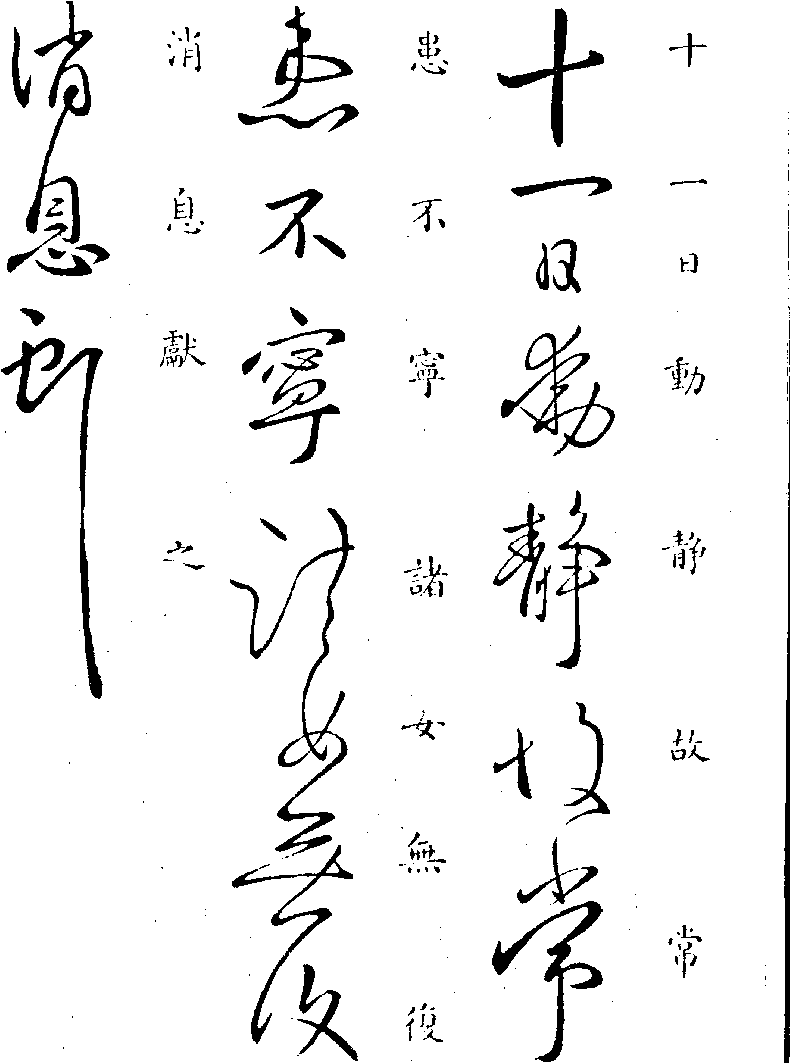 十一日動静故常
十一日動静故常
患不寧諸女無復
患不寧諸女無復
消息獻之
消息獻之